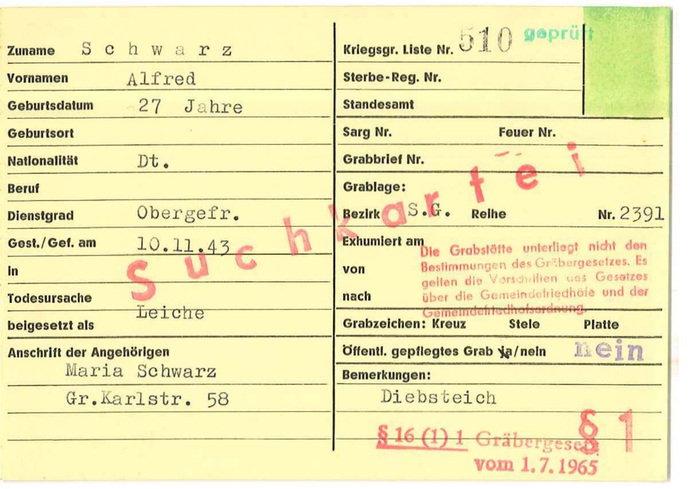 Zuname S c h w a r z
Vornamen Alfred
Geburtsdatum 27 Jahre
Geburtsort
Nationalität Dt.
Beruf
Dienstgrad Obergefr.
Gest./Gef. am 10.11.43
in
Todesursache
beigesetzt als Leiche
Anschrift der Angehörigen
Maria Schwarz
Gr.Karlstr. 58
Kriegsgr. Liste Nr. 510 geprüft
Sterbe-Reg. Nr.
Standesamt
Sarg Nr. Feuer Nr.
Grabbrief Nr.
Grablage:
Bezirk S.G. Reihe Nr. 2391
Exhumiert am
von
nach
Die Grabstätte unterliegt nicht den
Bestimmungen des Gräbergesetzes. Es
gelten die Vorschriften des Gesetzes
über die Gemeindefriedhöfe und der
Gemeindefriedhofsordnung.
Grabzeichen: Kreuz Stele Platte
Öffentl. gepflegtes Grab ja/nein nein
Bemerkungen:
Diebsteich
Suchkartei
§ 1
§ 16 (1) 1 Gräbergesetz
vom 1.7.1965